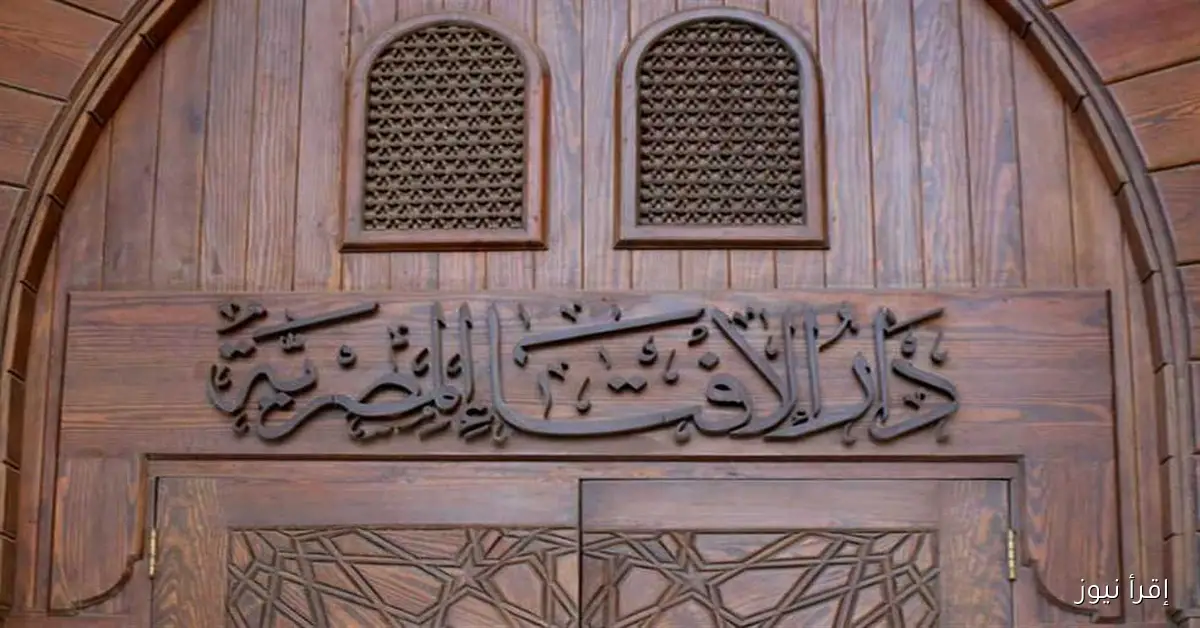 دار الإفتاء المصرية
إقرأ نيوز